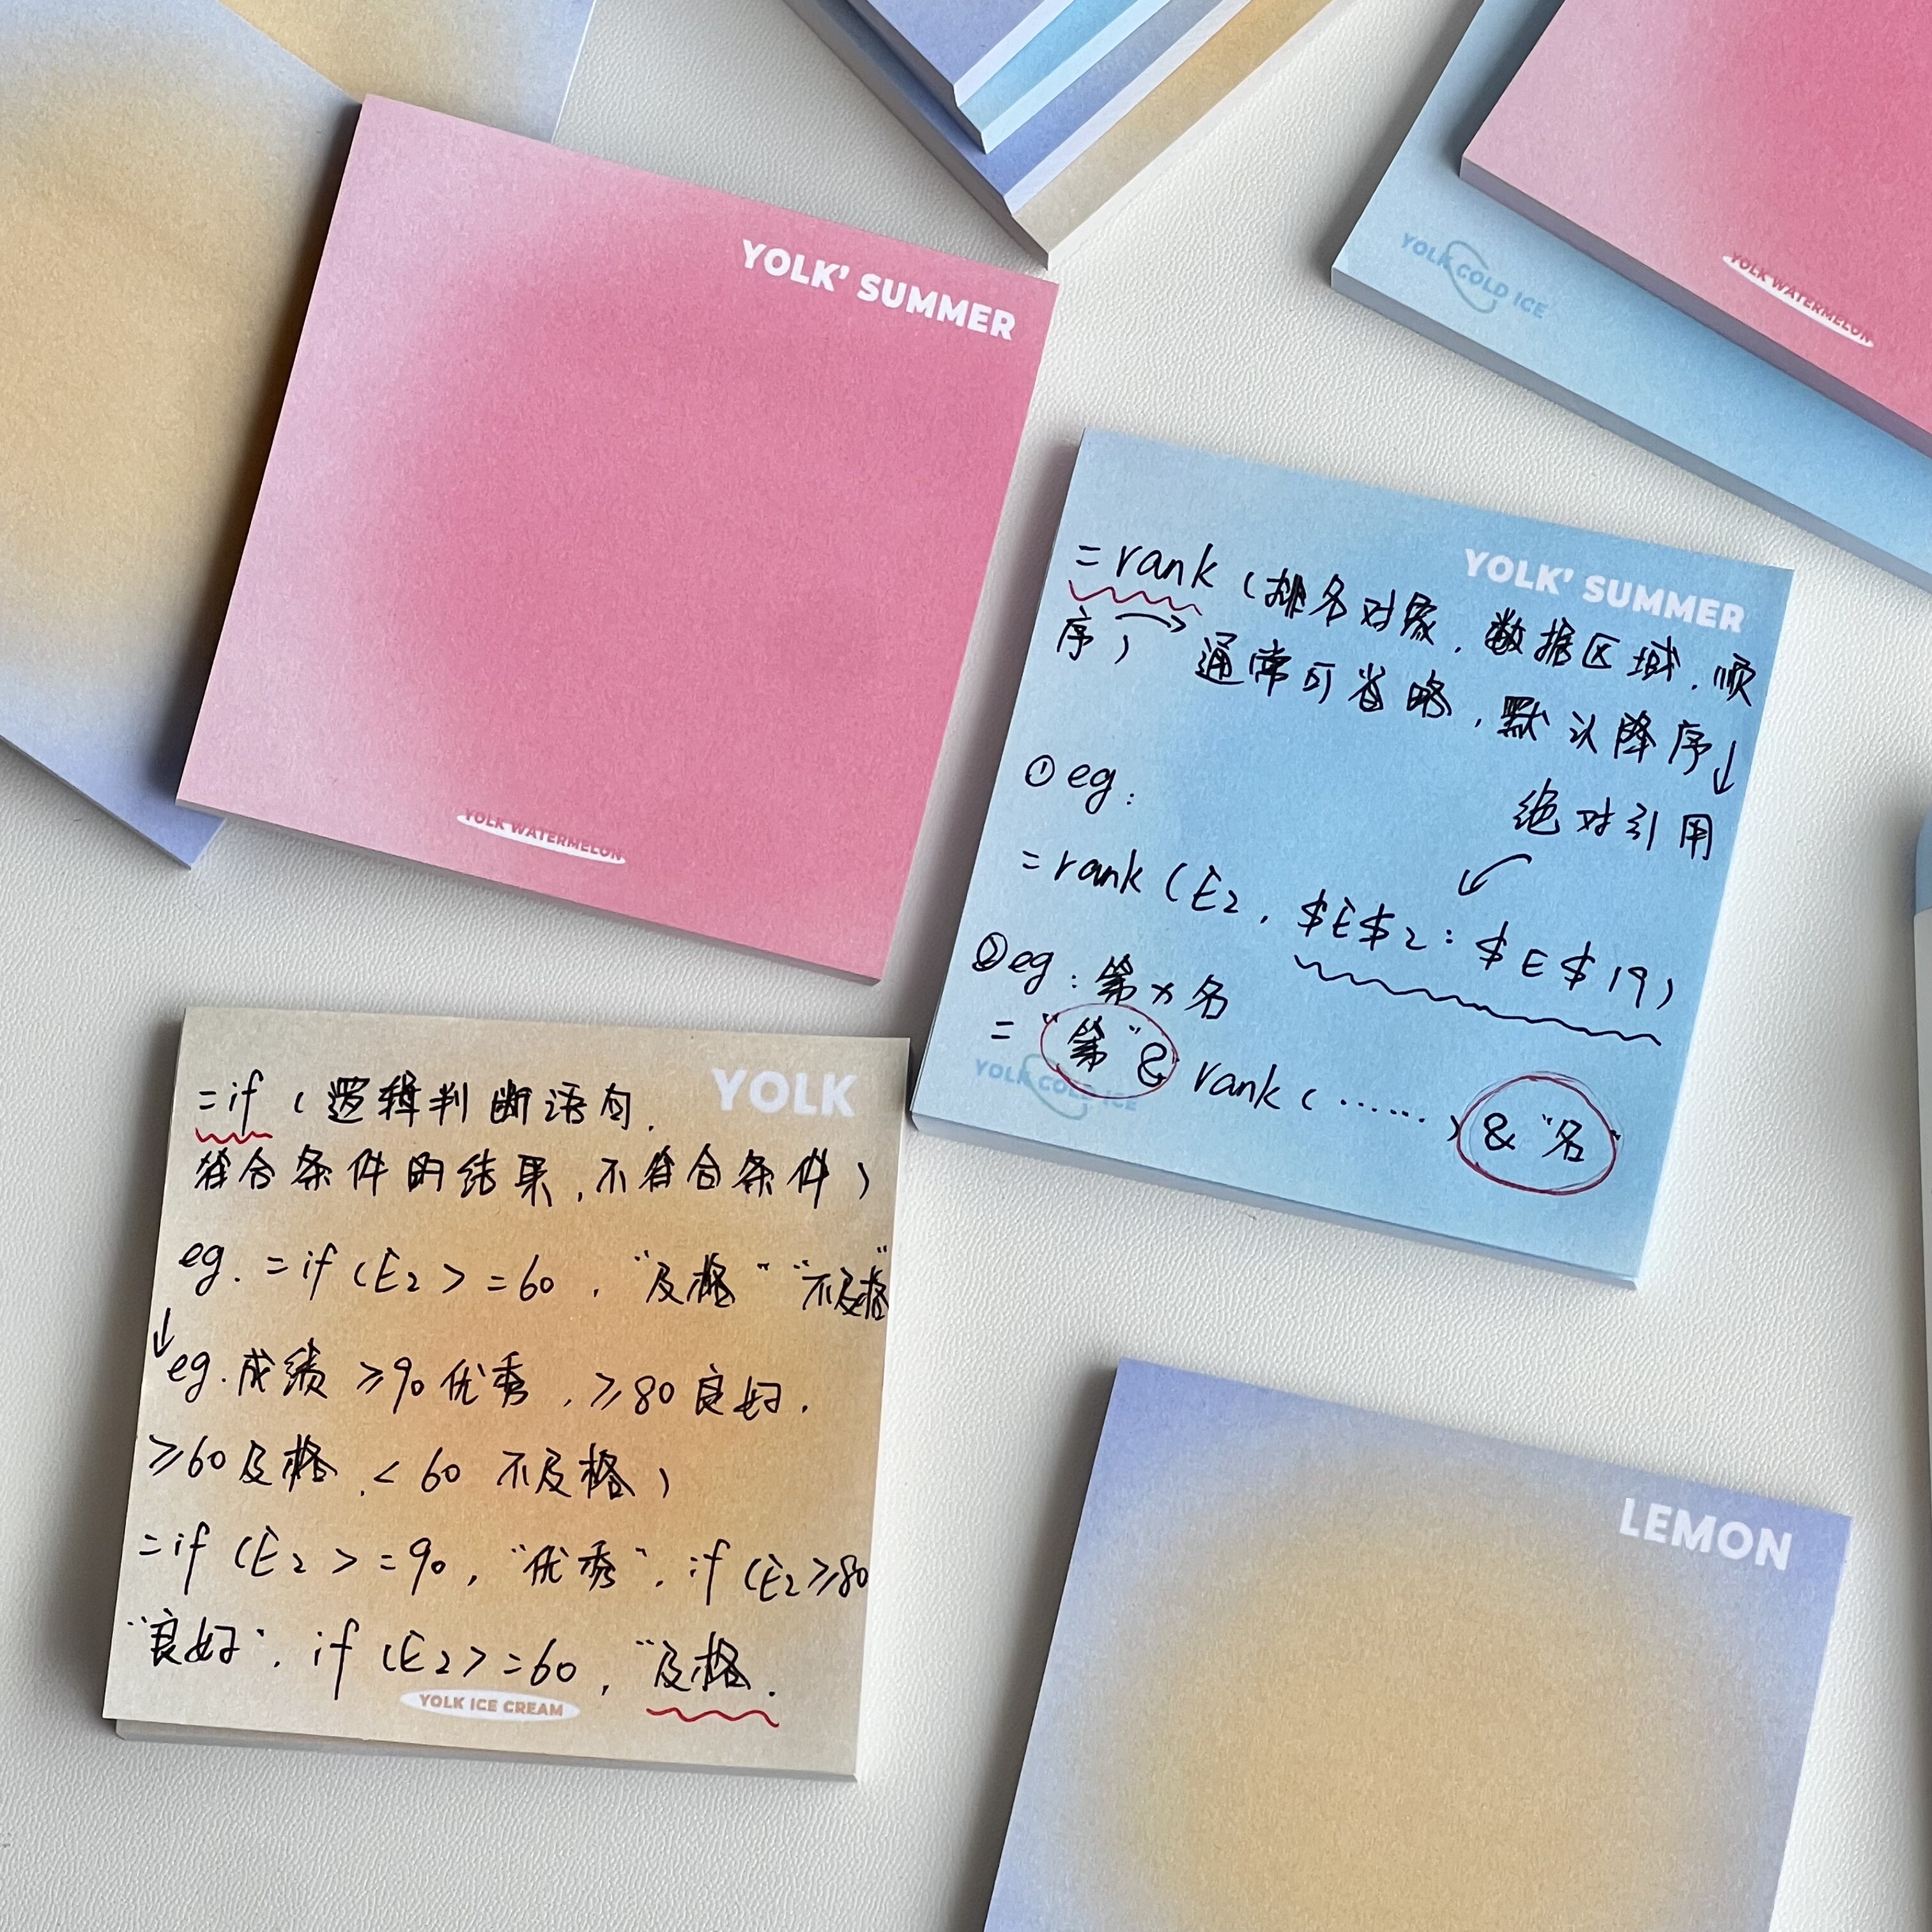 YOLK' SUMMER
YOLK WATERMELON
YOLK COLD ICE
YOLK WATERMELON
YOLK' SUMMER
=rank(排名对象,数据区域,顺
序)→通常可省略,默认降序↓
①eg:
绝对引用
=rank(E2,$E$2:$E$19)
②eg:第x名
="第"&rank(……)&"名"
YOLK COLD ICE
YOLK
=if(逻辑判断语句,
符合条件的结果,不符合条件)
eg.=if(E2>=60,"及格""不及格"
↓
eg.成绩≥90优秀,≥80良好,
≥60及格,<60不及格)
=if(E2>=90,"优秀",if(E2≥80
"良好",if(E2>=60,"及格.
YOLK ICE CREAM
LEMON